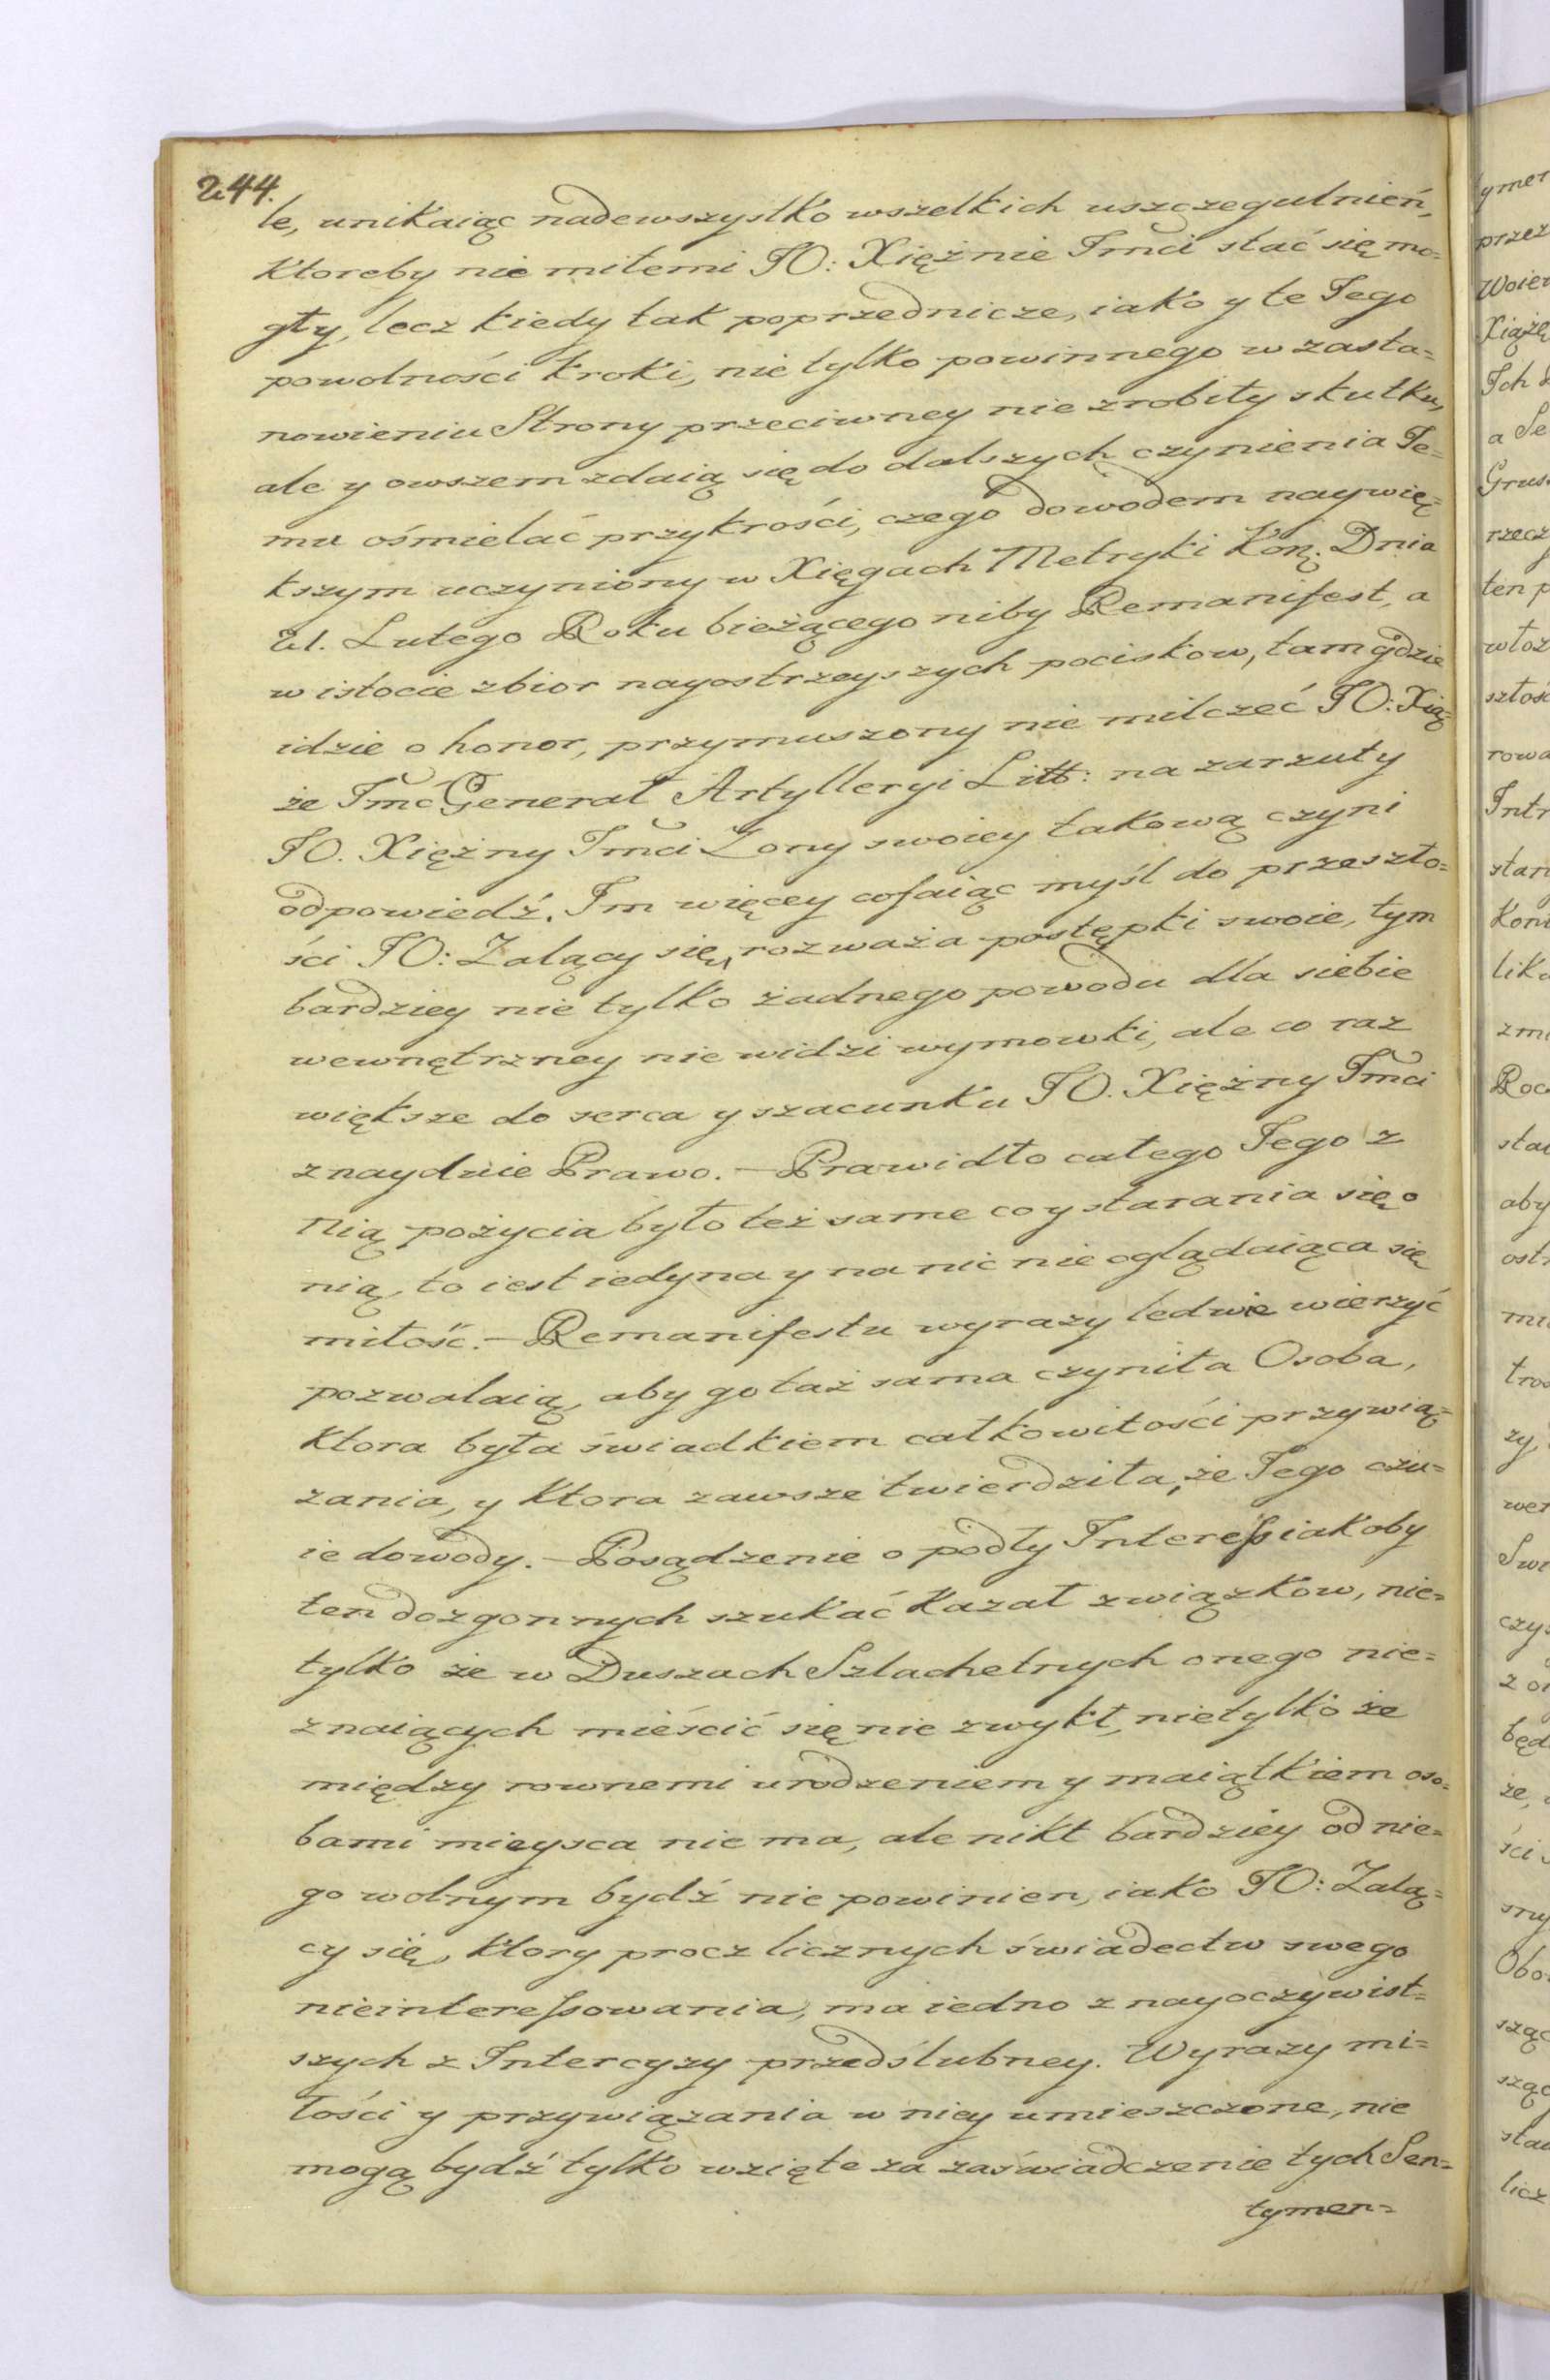 244.
le, unikaiąc nadewszystko wszelkich uszczegulnień,
ktoreby nie miłemi JO: Xiężnie Jmci stać się mo=
gły, lecz kiedy tak poprzednicze, iako y te Jego
powolności kroki, nie tylko powinnego w zasta=
nowieniu Strony przeciwney nie zrobiły skutku,
ale y owszem zdaią się do dalszych czynienia Je=
mu ośmielać przykrości, czego dowodem naywię=
kszym uczyniony w Xięgach Metryki Kor. Dnia
21. Lutego Roku bieżącego niby Remanifest, a
w istocie zbior nayostrzeyszych pociskow, tam gdzie
idzie o honor, przymuszony nie milczeć JO: Xią=
że Jmć Generał Artylleryi Litt: na zarzuty
JO. Xiężny Jmci Zony swoiey takową czyni
odpowiedź. Im więcey cofaiąc myśl do przeszło=
ści JO: Zalący się, rozważa postępki swoie, tym
bardziey nie tylko żadnego powodu dla siebie
wewnętrzney nie widzi wymowki, ale co raz
większe do serca y szacunku JO. Xiężny Jmci
znayduie Prawo. — Prawidło całego Jego z
Nią pożycia było też same co y starania się o
nią, to iest iedyna y na nic nie oglądaiąca się
miłość. — Remanifestu wyrazy ledwie wierzyć
pozwalaią, aby go taż sama czyniła Osoba,
ktora była świadkiem całkowitości przywią=
zania, y ktora zawsze twierdziła, że Jego czu=
ie dowody. — Posądzenie o podły Interess iakoby
ten dozgonnych szukać kazał związkow, nie=
tylko że w Duszach Szlachetnych onego nie=
znaiących mieścić się nie zwykł, nietylko że
między rownemi urodzeniem y maiątkiem oso=
bami mieysca nie ma, ale nikt bardziey od nie=
go wolnym bydź nie powinien, iako JO: Zalą=
cy się, ktory procz licznych świadectw swego
nieinteressowania, ma iedno z nayoczywist=
szych z Intercyzy przedślubney. Wyrazy mi=
łości y przywiązania w niey umieszczone, nie
mogą bydź tylko wzięte za zaświadczenie tych Sen=
tymen=